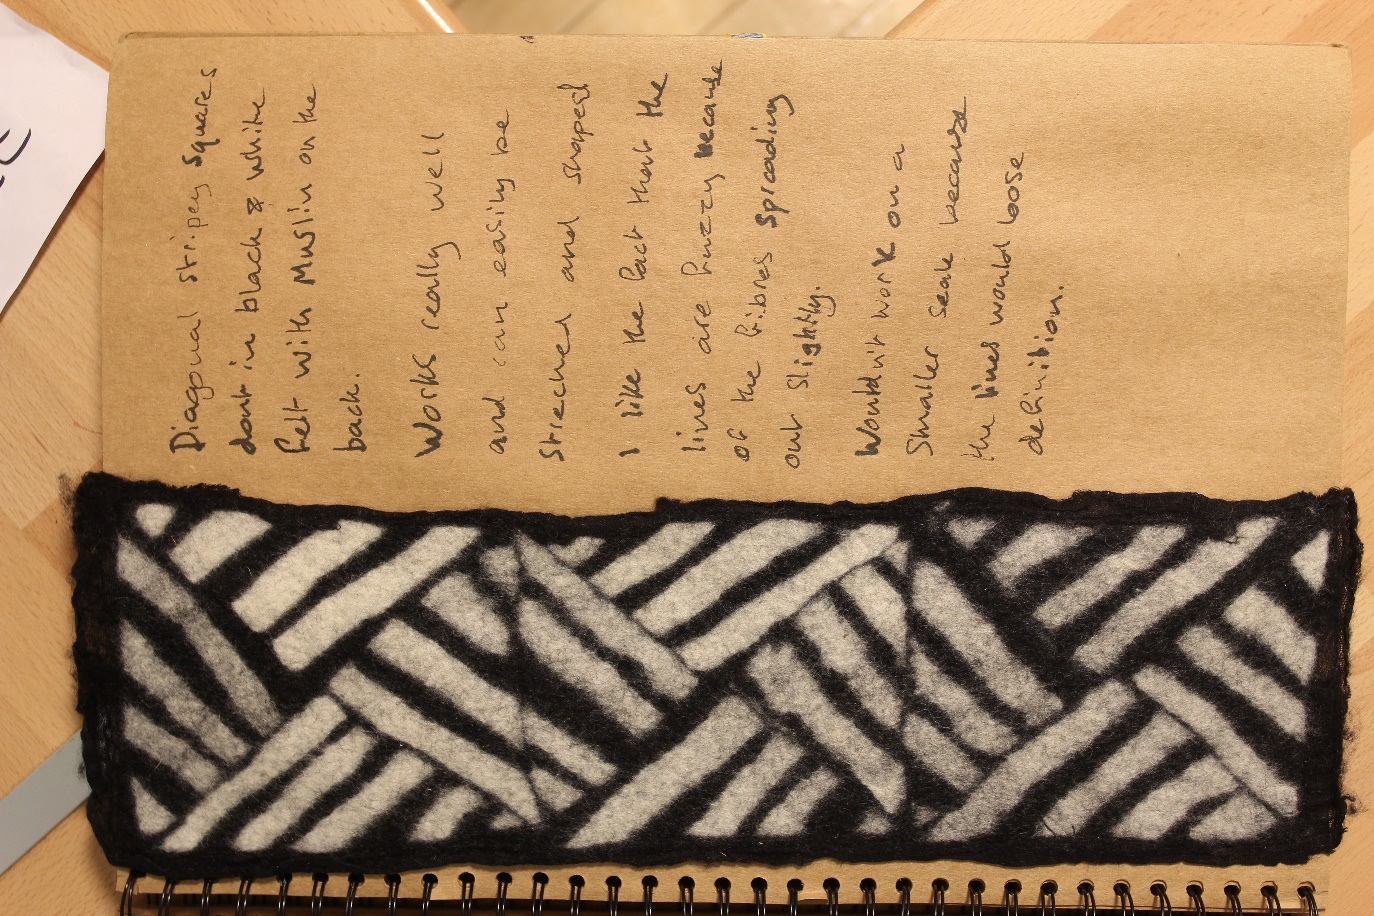 Diagonal stripey squares
dont in black & white
felt with Muslin on the
back.
Works really well
and can easily be
streched and shaped
I like the fact that the
lines are fuzzy because
of the fibres spreading
out slightly.
Wouldn't work on a
Smaller scale because
the lines would loose
definition.